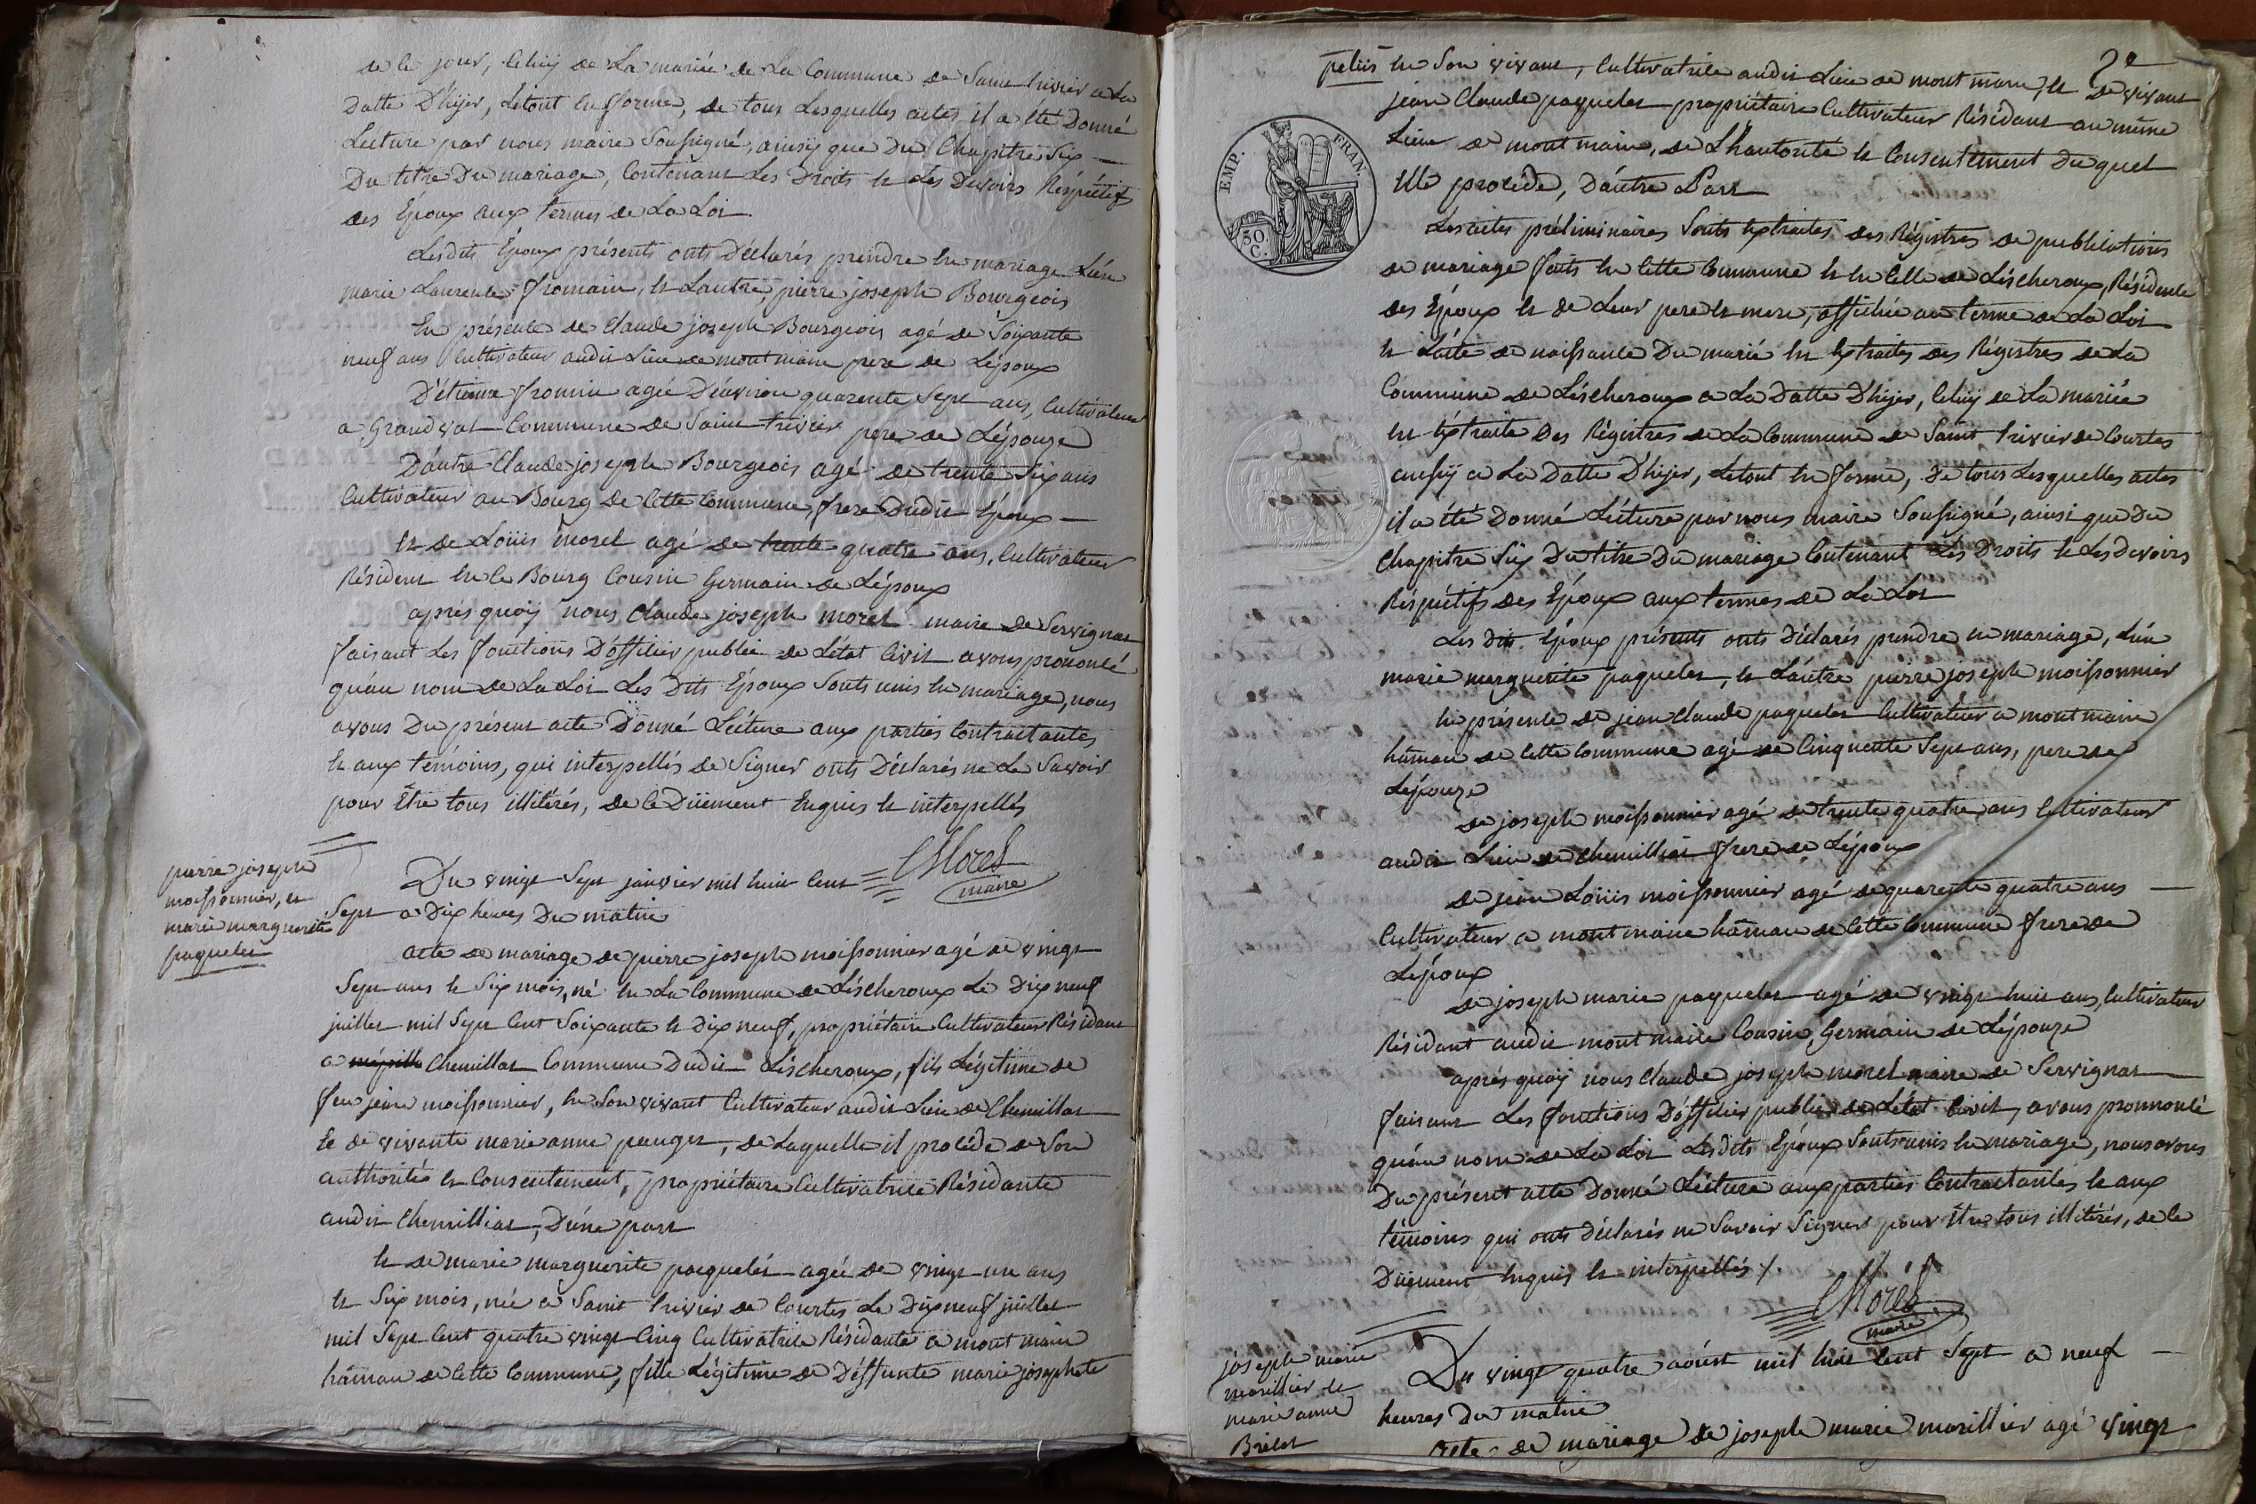 de ce jour, celuy de La mariée de La Commune de Saint trivier a La
Datte D'hijer, Létout en fforme, de tous Lesquelles actes il a été Donné
Lecture par nous maire Soussigné, ainsÿ que du Chapitre Six
Du titre Du mariage, Contenant Les Droits et Les Devoirs Réspéctifs
des Époux aux termes de La Loi
Lesdits Époux présents onts Déclarés prendre en mariage L'ún
marie Laurence fromain, et Lautre, pierre joseph Bourgeois
En présence de Claude joseph Bourgeois agé de Soixante
neuf ans Cultivateur audit Lieu de mont main pere de Lépoux
D'étienne fromin agée D'énviron quarente Sept ans, Cultivateur
a Grandval Commune de Saint trivier pere de Lépouze
D'áutre Claude joseph Bourgeois agé de trente Six ans
Cultivateur au Bourg de Cette Commune, frere Dudit Époux
et de Loüis morel agé de trente quatre ans, Cultivateur
Résident en ce Bourg Cousin Germain de Lépoux
aprés quoÿ nous Claude joseph morel maire de Servignat
faisant Les fonctions D'óffitier public de L'état Civil avons prononcé
qu'au nom de La Loi Les Dits Époux Sonts unis en mariage, nous
avons Du présent acte Donné Lécture aux parties Contractantes
et aux témoins, qui interpellés de Signer onts Déclarés ne Le Savoir
pour Être tous illitérés, de ce Düement Enquis et interpellés
CMorel
maire
pierre joseph
moissonnier, et
marie marguerite
paquelet
Du vingt Sept janvier mil huit Cent
Sept a Dix heures Du matin
acte de mariage de pierre joseph moissonnier agé de vingt
Sept ans et Six mois, né en La Commune de Léscheroux Le Dix neuf
juillet mil Sept Cent Soixante et Dix neuf, propriétaire Cultivateur Résidant
a Chemillat Commune Dudit Léscheroux, fils Légitime de
feu jean moissonnier, en Son vivant Cultivateur audit Lieu de Chemillat
Et de vivante marie anne pauget, de Laquelle il procéde de Son
authorité et Consentement, propriétaire Cultivatrice Résidante
audit Chemilliat, D'úne part
Et de marie marguerite paquelét agée de vingt un ans
et Six mois, née a Saint trivier de Courtes Le Dix neuf juillet
mil Sept Cent quatre vingt Cinq Cultivatrice Résidante a mont main
hâmau de Cette Commune, fille Légitime de Déffunte marie josephete
2e
petiis en Son vivant, Cultivatrice audit Lieu de mont main, et De vivant
jean Claude paquelet propriétaire Cultivateur Résidant au même
Lieu de mont main, de L'háutorité et Consentement Duquel
Elle procéde, D'áutre Part
EMP. FRAN.
50. C.
Les actes préliminaires Sonts Extraites des Régistres de publications
de mariage faits en Cette Commune et en Celle de Léscheroux, Résidence
des Époux et de Leur pere et mere, affichée au terme de La Loi
et L'acte de naissance Du marié est Extraites des Régistres de La
Commune de Léscheroux a La Datte D'hijer, Celuy de La mariée
est Extraite Des Régistres de La Commune de Saint trivier de Courtes
aussÿ a La Datte D'hijer, Létout en forme, De tous Lesquelles actes
il a été Donné Lécture par nous maire Soussigné, ainsi que Du
Chapitre Six Du titre Du mariage Contenant Les Droits et Les Devoirs
Réspéctifs des Époux aux termes de La Loi
Les Dits Époux présents onts Déclarés prendre en mariage, L'ún
marie marguerite paquelet, et L'áutre pierre joséph moissonnier
En présence de jean Claude paquelet Cultivateur a mont main
hâmau de Cette Commune agé de Cinquente Sept ans, pere de
Lépouze
de joseph moissonnier agé de trente quatre ans Cultivateur
audit Lieu de Chemilliat frere de Lépoux
de jean Loüis moissonnier agé de quarente quatre ans
Cultivateur a mont main hâmau de Cette Commune frere de
Lépoux
de joseph marie paquelet agé de vingt huit ans, Cultivateur
Résidant audit mont main Cousin Germain de Lépouze
aprés quoÿ nous Claude joseph morel maire de Servignat
faisant Les fonctions D'óffitier public de L'état Civil, avons pronnoncé
qu'áu nom de La Loi Les dits Époux Sonts unis en mariage, nous avons
Du présent acte Donné Lécture aux parties Contractantes et aux
témoins qui onts déclarés ne Savoir Signer pour Être tous illitérés, de ce
Düement Enquis et interpellés /.
CMorel
maire
joseph marie
marillier et
marie anne
Brélat
Du vingt quatre aôust mil huit Cent Sept a neuf
heures Du matin
acte de mariage de joseph marie marillier agé vingt